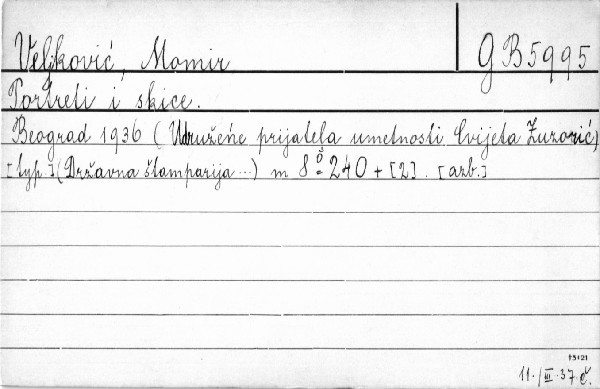 Veljković, Momir
GB5995
Portreti i skice.
Beograd 1936 (Udruženje prijatela umetnosti Cvijeta Zuzorić)
[typ.] (Državna štamparija...) m 8° 240 + [2]. [azb.]
11./III.37.č.